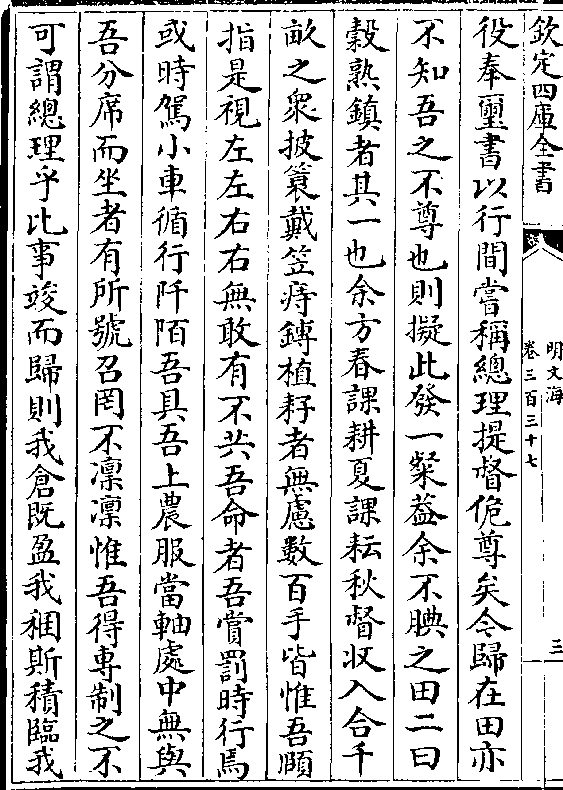 欽定四庫全書
明文海
卷三百三十七
三
役奉璽書以行間嘗稱總理提督佹尊矣今歸在田亦
不知吾之不尊也則擬此發一粲葢余不腆之田二曰
穀熟鎮者其一也余方春課耕夏課耘秋督收入合千
畝之衆披簑戴笠痔鎛植耔者無慮數百手皆惟吾頤
指是視左左右右無敢有不共吾命者吾賞罰時行焉
或時駕小車循行阡陌吾具吾上農服當軸處中無與
吾分席而坐者有所號召罔不凛凛惟吾得專制之不
可謂總理乎比事竣而歸則我倉既盈我稛斯積臨我